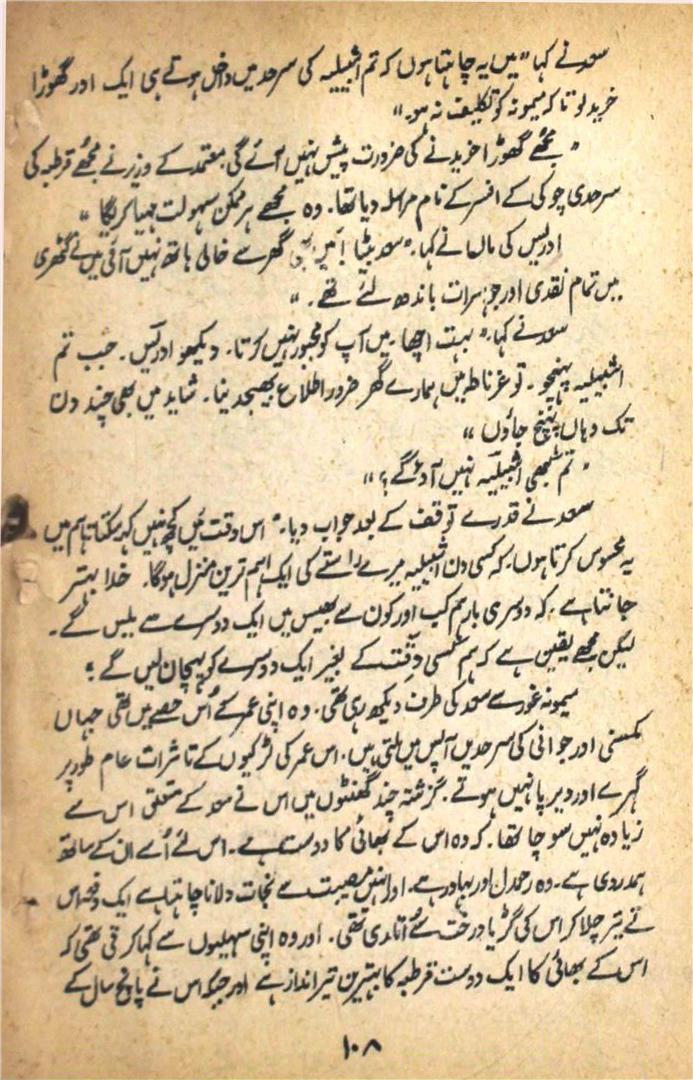 سعد نے کہا "میں یہ چاہتا ہوں کہ تم اشبیلیہ کی سرحد میں داخل ہوتے ہی ایک اور گھوڑا
خرید لو تاکہ میمونہ کو تکلیف نہ ہو۔"
"مجھے گھوڑا خریدنے کی ضرورت پیش نہیں آئے گی۔ معتمد کے وزیر نے مجھے قرطبہ کی
سرحدی چوکی کے افسر کے نام مراسلہ دیا تھا۔ وہ مجھے ہر ممکن سہولت مہیا کریگا"
ادریس کی ماں نے کہا۔ "سعد بیٹا! میں بھی گھر سے خالی ہاتھ نہیں آئی میں نے گٹھری
میں تمام نقدی اور جواہرات باندھ لئے تھے۔"
سعد نے کہا۔ "بہت اچھا۔ میں آپ کو مجبور نہیں کرتا۔ دیکھو ادریس۔ جب تم
اشبیلیہ پہنچو۔ تو غرناطہ میں ہمارے گھر ضرور اطلاع بھیجدینا۔ شاید میں بھی چند دن
تک وہاں پہنچ جاؤں"
"تم کبھی اشبیلیہ نہیں آؤ گے؟"
سعد نے قدرے توقف کے بعد جواب دیا۔ "اس وقت میں کچھ نہیں کہہ سکتا تاہم میں
یہ محسوس کرتا ہوں۔ کہ کسی دن اشبیلیہ میرے راستے کی ایک اہم ترین منزل ہوگا۔ خدا بہتر
جانتا ہے۔ کہ دوسری بار ہم کب اور کون سے بھیس میں ایک دوسرے سے ملیں گے۔
لیکن مجھے یقین ہے کہ ہم کسی دقت کے بغیر ایک دوسرے کو پہچان لیں گے"
میمونہ غور سے سعد کی طرف دیکھ رہی تھی۔ وہ اپنی عمر کے اُس حصے میں تھی جہاں
کمسنی اور جوانی کی سرحدیں آپس میں ملتی ہیں۔ اس عمر کی لڑکیوں کے تاثرات عام طور پر
گہرے اور دیرپا نہیں ہوتے۔ گزشتہ چند گھنٹوں میں اس نے سعد کے متعلق اس سے
زیادہ نہیں سوچا تھا۔ کہ وہ اس کے بھائی کا دوست ہے۔ اس لئے اُسے ان کے ساتھ
ہمدردی ہے۔ وہ رحمدل اور بہادر ہے۔ اور انہیں مصیبت سے نجات دلانا چاہتا ہے ایک دفعہ اس
نے تیر چلا کر اس کی گڑیا درخت سے اتاری تھی۔ اور وہ اپنی سہیلیوں سے کہا کرتی تھی کہ
اس کے بھائی کا ایک دوست قرطبہ کا بہترین تیر انداز ہے اور جبکہ اس نے پانچ سال کے
۱۰۸